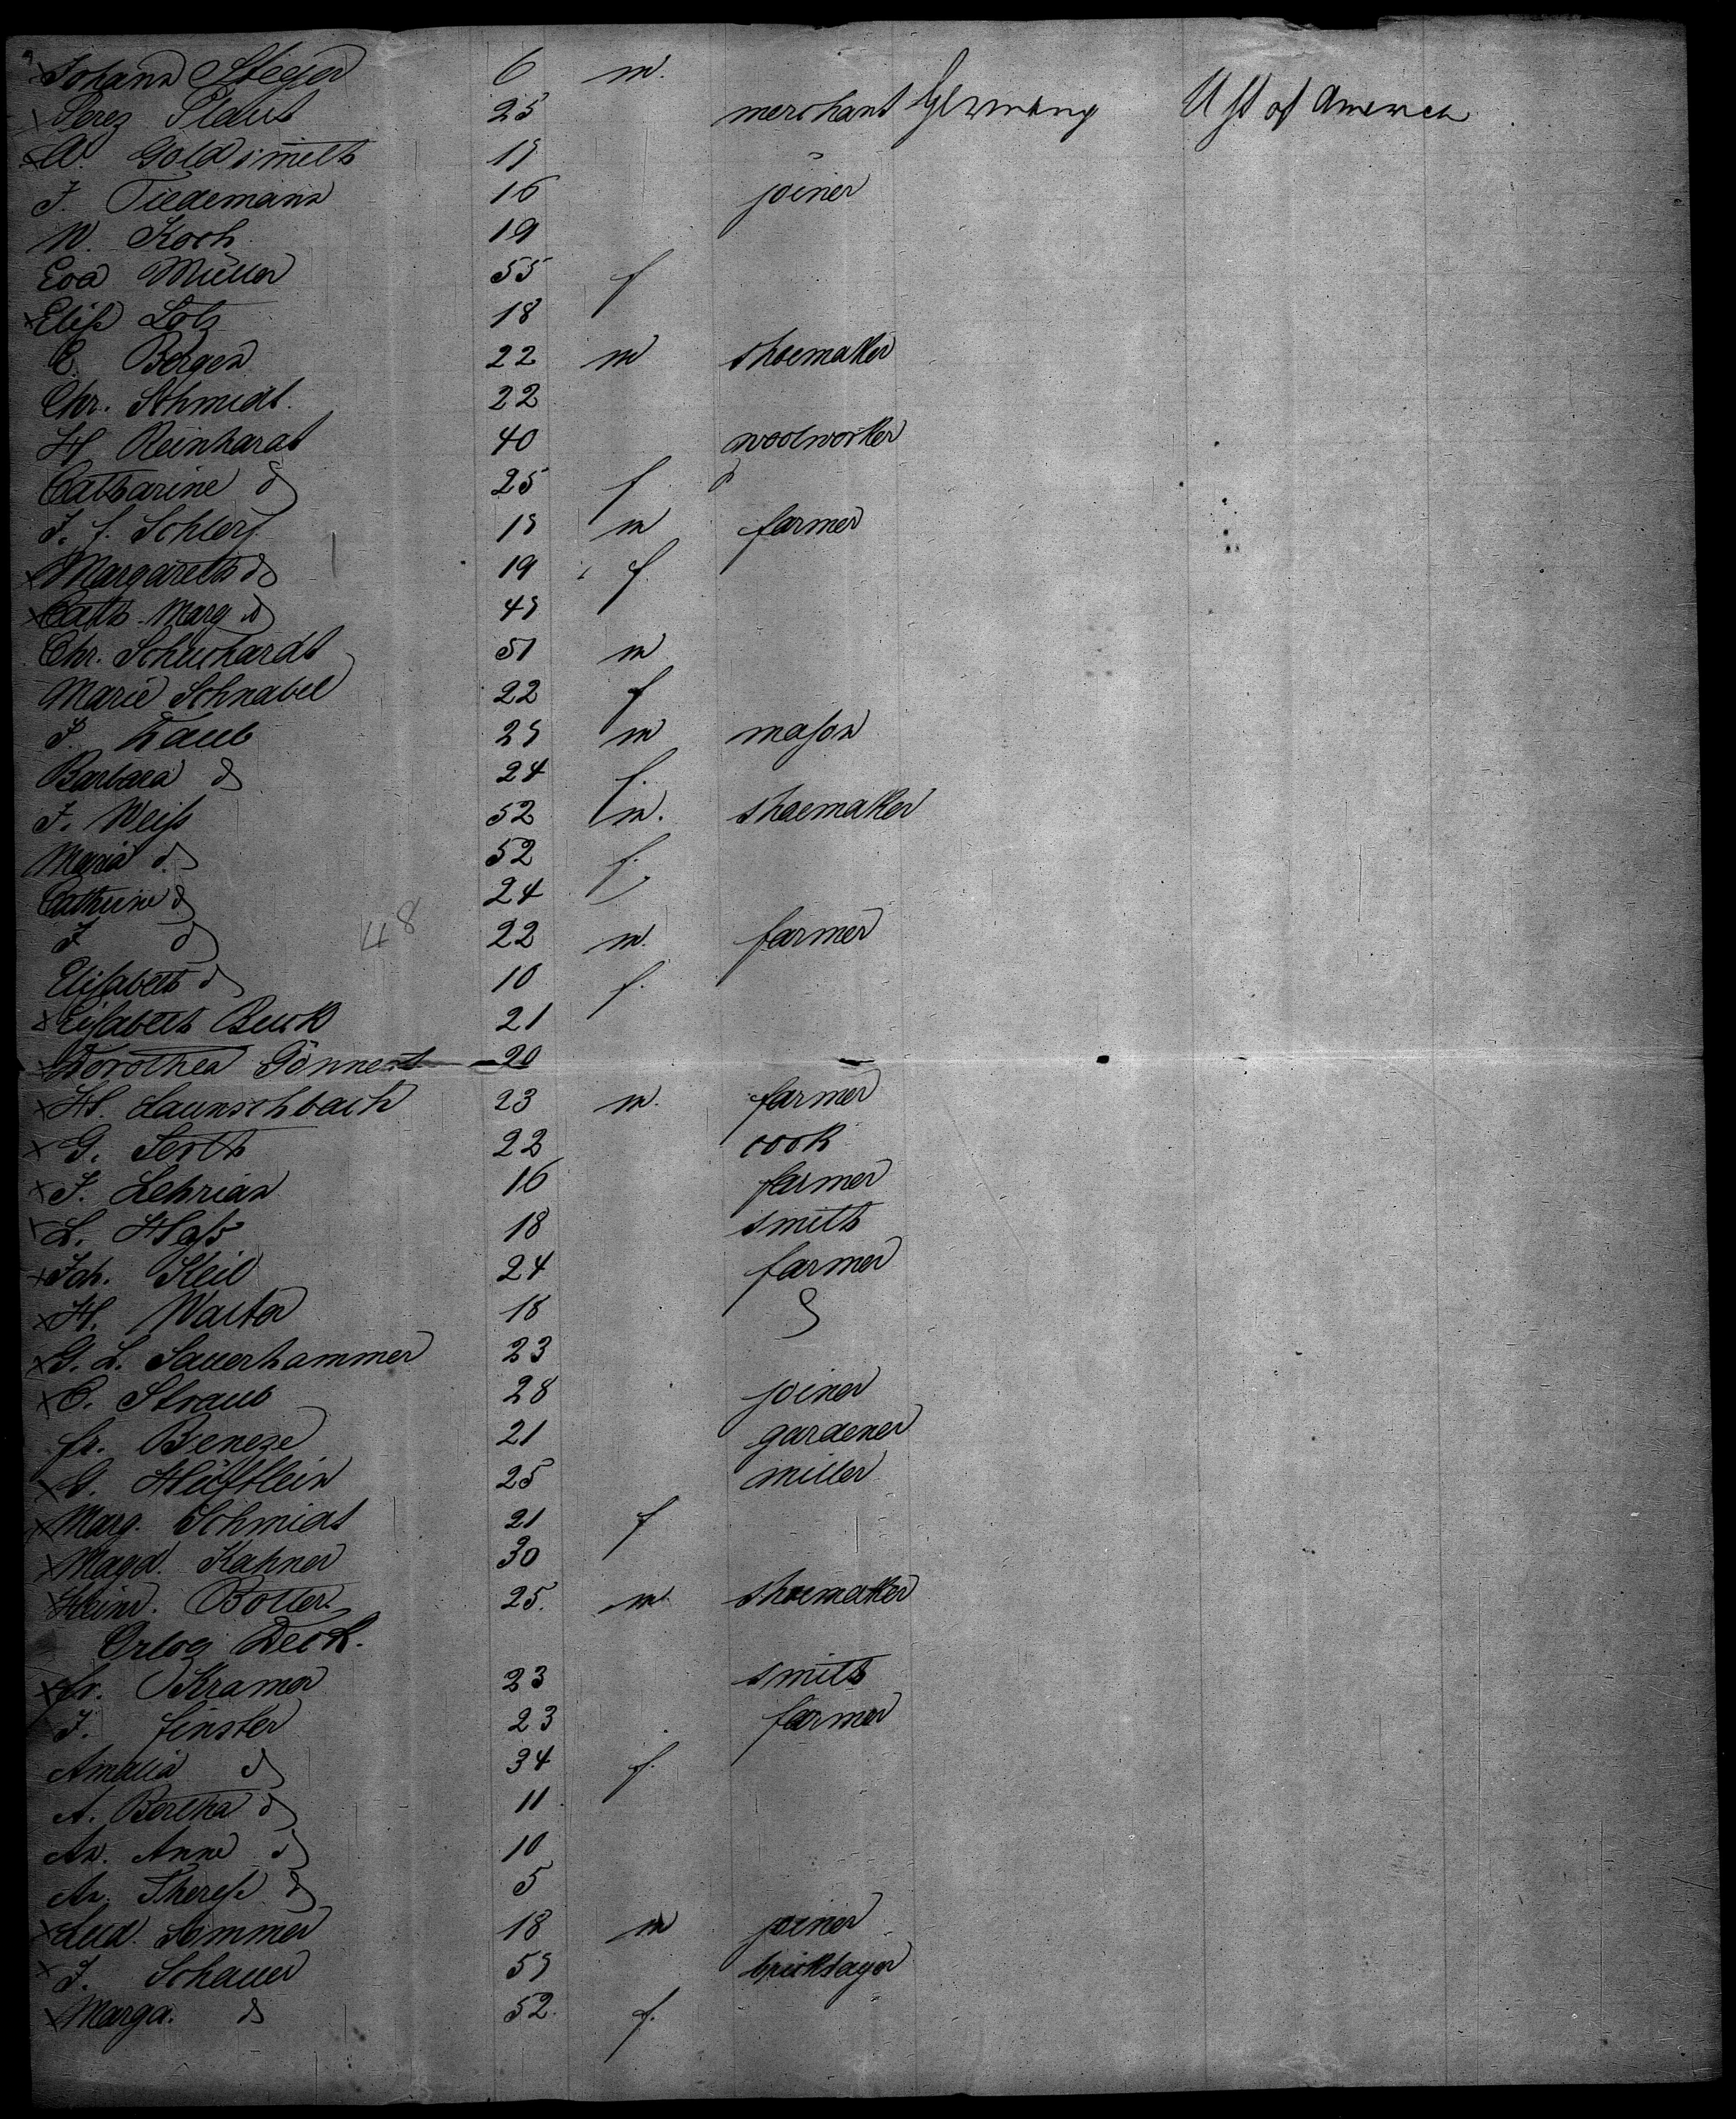 Johann Steger 6 m.
Perez Plaut 25 merchant Germany U St of America
A. Goldsmith 19
J. Tiedemann 16 joiner
W. Koch 19
Eva Müller 55 f
Elise Lotz 18
C. Bergen 22 m shoemaker
Chr. Schmidt. 22
H Reinhardt 40 woolworker
Catharine do 25 f
J. f. Schlerf 19 m farmer
Margareth do 19 f.
Cath. Marg do 49
Chr. Schuchardt 51 m
Marie Schnabel 22 f
Taub 29 m mason
Barbara do 24 f.
J. Weiss 52 m. shoemaker
Maria do 52 f.
Cathrine do 24
J do 22 m. farmer
48
Elisabeth do 10 f.
Elisabeth Buck 21
Dorothea Gönnert 20
H. Launschbach 23 m. farmer
G. 22 cook
J. Lehrian 16 farmer
L. Hass 18 smith
Joh. Keil 24 farmer
H. Walter 18
G. L. Sauerhammer 23
C. Straub 28 joiner
fr. Beneze 21 gardener
G. Häfflein 25 miller
Marg. Schmidt 21 f
Magd. Kahner 30
Heinr. Botter 25. m. shoemaker
Orlog Deck.
fr. Kramer 23 smith
J. finster 23 farmer
Amalia do 34 f.
A. Bertha do 11
An. Anne do 10
An. Therese do 5
Lud. Sommer 18 m joiner
J. Schauer 59 bricklayer
Marga. do 52. f.